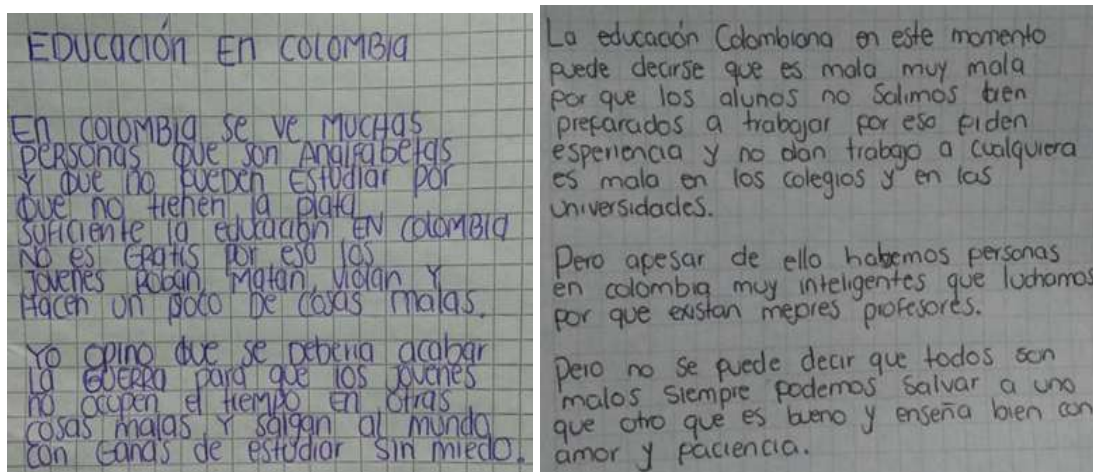 EDUCACIÓN EN COLOMBIA
EN COLOMBIA SE VE MUCHAS
PERSONAS QUE SON ANALFABETAS
Y QUE NO PUEDEN ESTUDIAR POR
QUE NO TIENEN LA PLATA
SUFICIENTE LA EDUCACIÓN EN COLOMBIA
NO ES GRATIS POR ESO LOS
JOVENES ROBAN, MATAN, VIOLAN Y
HACEN UN POCO DE COSAS MALAS.
YO OPINO QUE SE DEBERIA ACABAR
LA GUERRA PARA QUE LOS JOVENES
NO OCUPEN EL TIEMPO EN OTRAS
COSAS MALAS Y SALGAN AL MUNDO
CON GANAS DE ESTUDIAR SIN MIEDO.
La educación Colombiana en este momento
puede decirse que es mala muy mala
por que los alunos no Salimos bien
preparados a trabajar por eso piden
esperiencia y no dan trabajo a cualquiera
es mala en los colegios y en las
universidades.
Pero apesar de ello habemos personas
en colombia muy inteligentes que luchamos
por que existan mejores profesores.
Pero no se puede decir que todos son
malos siempre podemos salvar a uno
que otro que es bueno y enseña bien con
amor y paciencia.